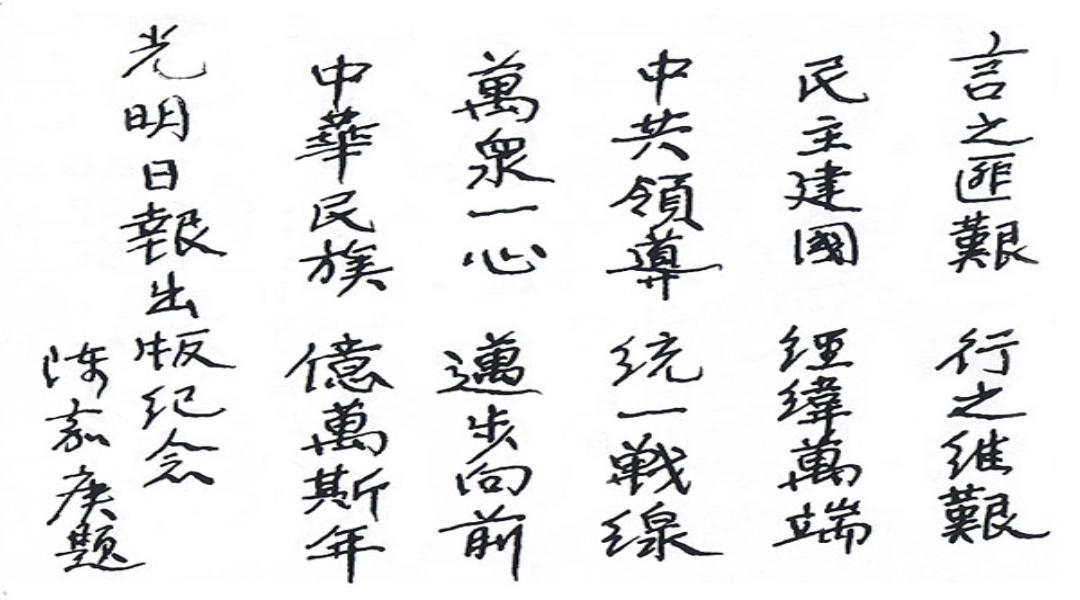 言之匪艱　行之維艱
民主建國　經緯萬端
中共領導　統一戰線
萬眾一心　邁步向前
中華民族　億萬斯年
光明日報出版纪念
陳嘉庚題